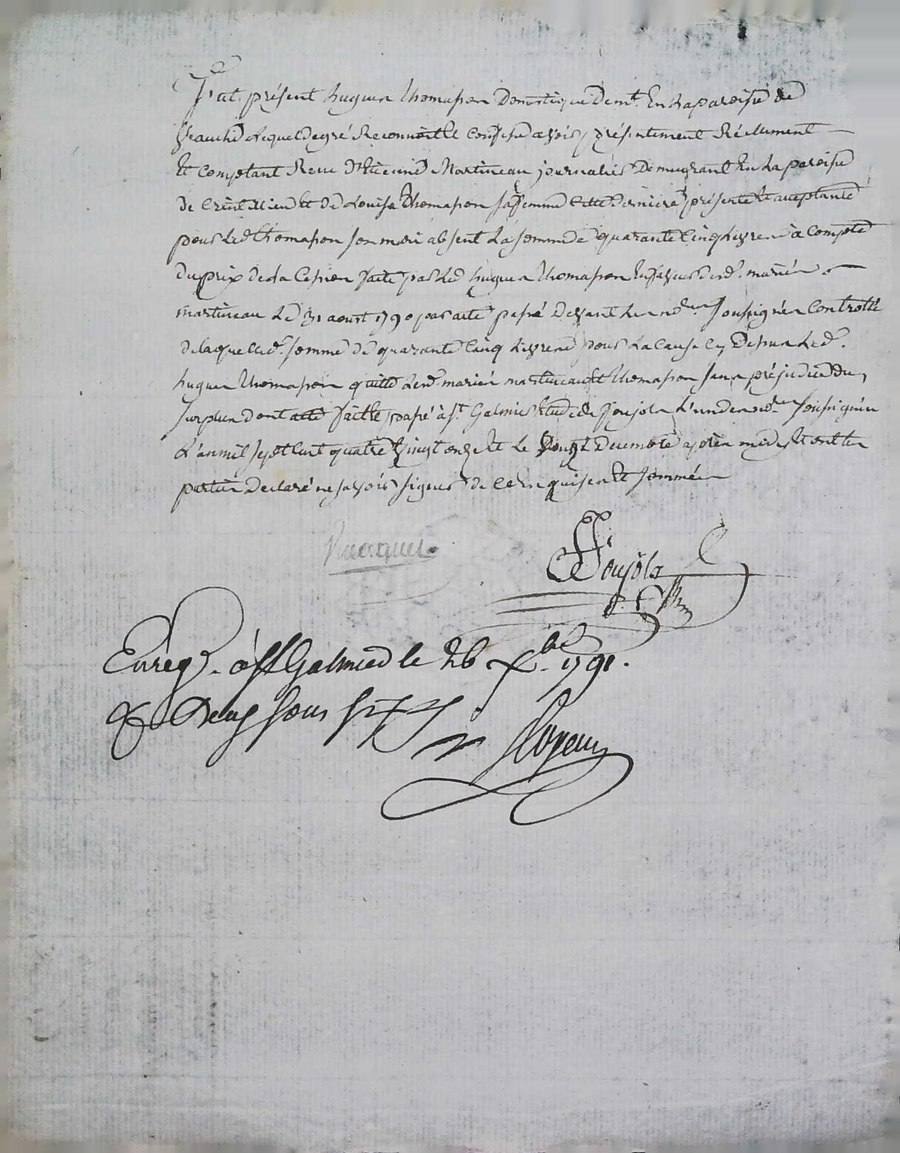 fut présent hugues thomasson Domestique Demt. En La paroisse de
lequel de gré Reconnoit et Confesse avoir présentement Réellement
Et Comptant Recu d'Etienne Martineau journalier Demeurant En La paroisse
de Et de Louise thomasson sa femme Cette Derniere présente Et acceptante
pour Led. thomasson son mari absent La somme de quarante Cinq Livres à Compte
du prix de la Cession faite par Led. hugues thomasson En faveur desd. mariés
martineau Le 31 aout 1790 par acte passé Devant Le nore. soussigné Controllé
de laquelle d. somme de quarante Cinq Livres pour La Cause Cy Dessus Led.
hugues thomasson quitte Lesd. mariés martineau Et thomasson sans préjudice du
surplus dont acte fait Et passé à st. Galmier Etude de Jousola L'un des nores. soussignés
L'an mil sept Cent quatre vingt onze Et Le Decembre après midy Et ont Les
parties Declaré ne savoir signer de Ce Enquises Et sommées
Jousola
Enregé. à st Galmier le 26 Xbre 1791.
R Deux sous